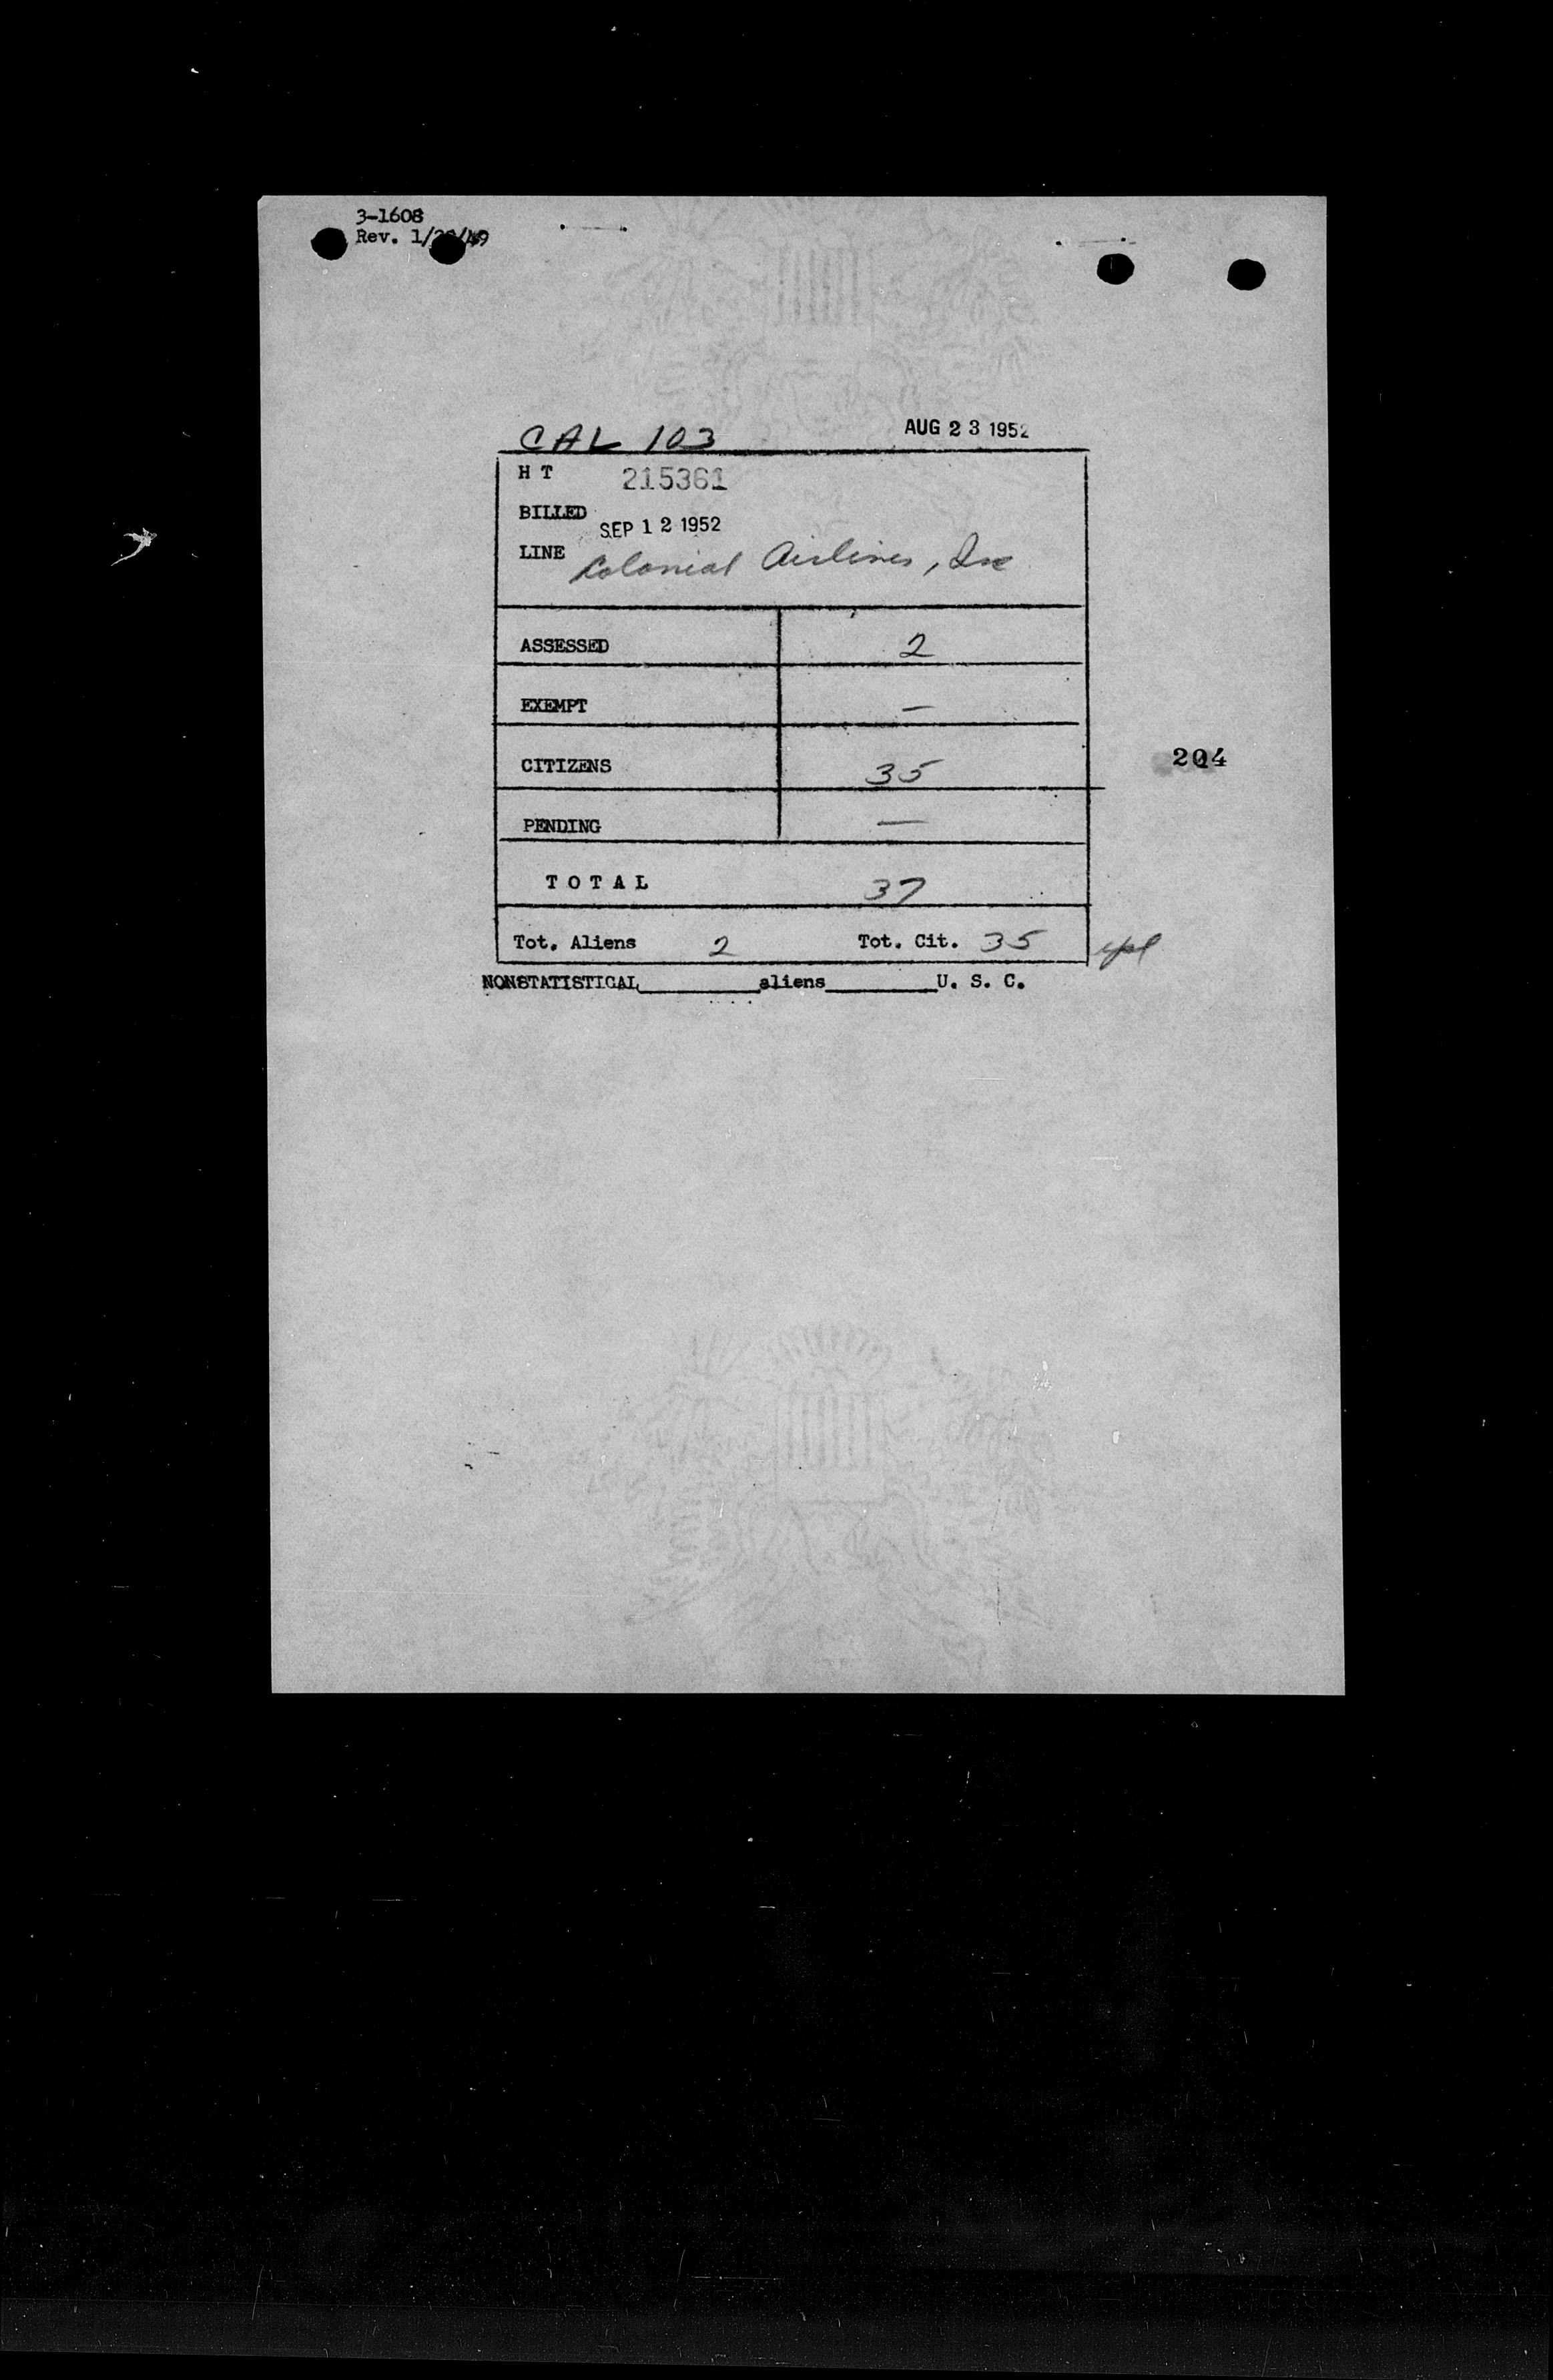 3-1608
Rev. 1/ /49
CAL 103 AUG 23 1952
H T 215361
BILLED SEP 12 1952
LINE Colonial Airlines, Inc
ASSESSED 2
EXEMPT —
CITIZENS 35
204
PENDING —
TOTAL 37
Tot. Aliens 2 Tot. Cit. 35
NONSTATISTICAL________aliens________U. S. C.